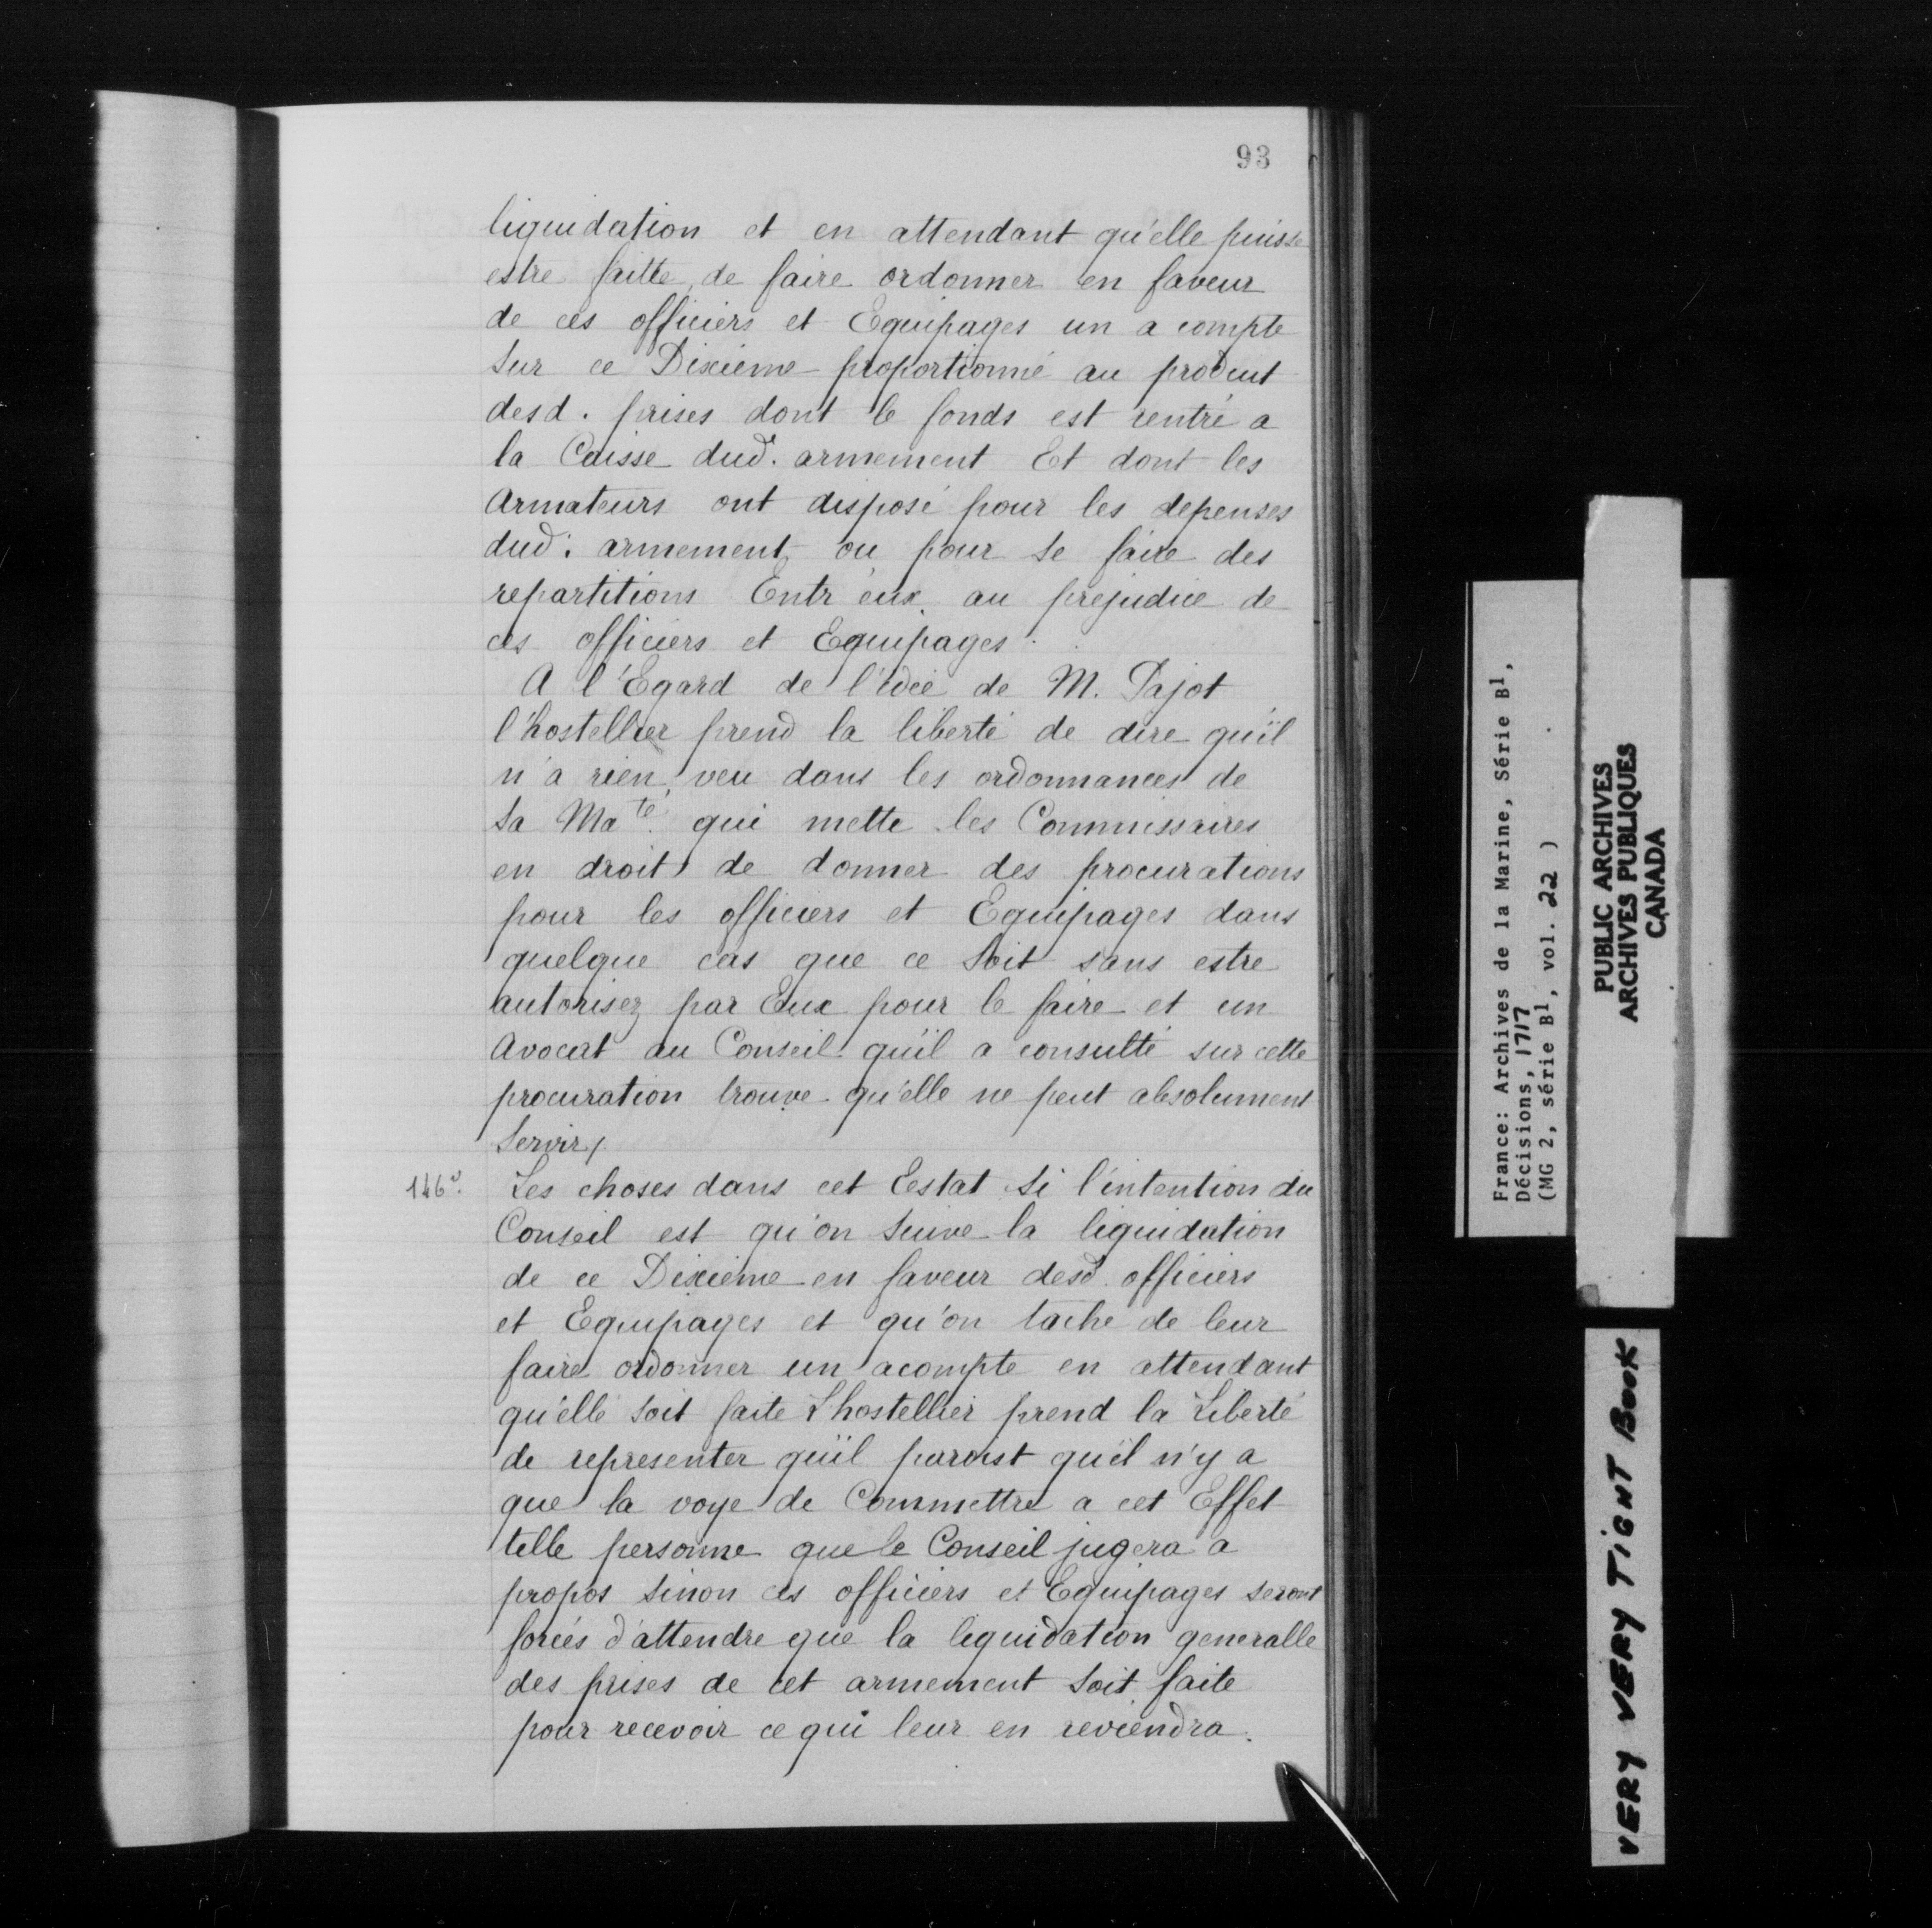 93
liquidation et en attendant qu'elle puisse
estre faitte, de faire ordonner en faveur
de ces officiers et Equipages un a compte
sur ce Dixiéme proportionné au produit
desd. prises dont le fonds est rentré a
la Caisse dud. armement Et dont les
armateurs ont disposé pour les depenses
dud. armement, ou pour se faire des
repartitions Entr'eux, au préjudice de
ces officiers et Equipages.
A l'Egard de l'idée de M. Pajot
l'hostellier prend la liberté de dire qu'il
n'a rien, veu dans les ordonnances de
Sa Ma.te qui mette les Commissaires
en droit de donner des procurations
pour les officiers et Equipages dans
quelque cas que ce soit sans estre
autorisez par Eux pour le faire et un
Avocat au Conseil qu'il a consulté sur cette
procuration trouve qu'elle ne peut absolument
servir/.
146v. Les choses dans cet Estat si l'intention du
Conseil est qu'on suive la liquidation
de ce Dixième en faveur desd. officiers
et Equipages et qu'on tache de leur
faire ordonner un acompte en attendant
qu'elle soit faite L'hostellier prend la Liberté
de representer qu'il paroist qu'il n'y a
que la voye de Commettre a cet Effet
telle personne que le Conseil jugera a
propos sinon ces officiers et Equipages seront
forcés d'attendre que la liquidation generalle
des prises de cet armement soit faite
pour recevoir ce qui leur en reviendra.
France: Archives de la Marine, Série B1,
Décisions, 1717
(MG 2, série B1, vol. 22 )
PUBLIC ARCHIVES
ARCHIVES PUBLIQUES
CANADA
VERY VERY TIGHT BOOK